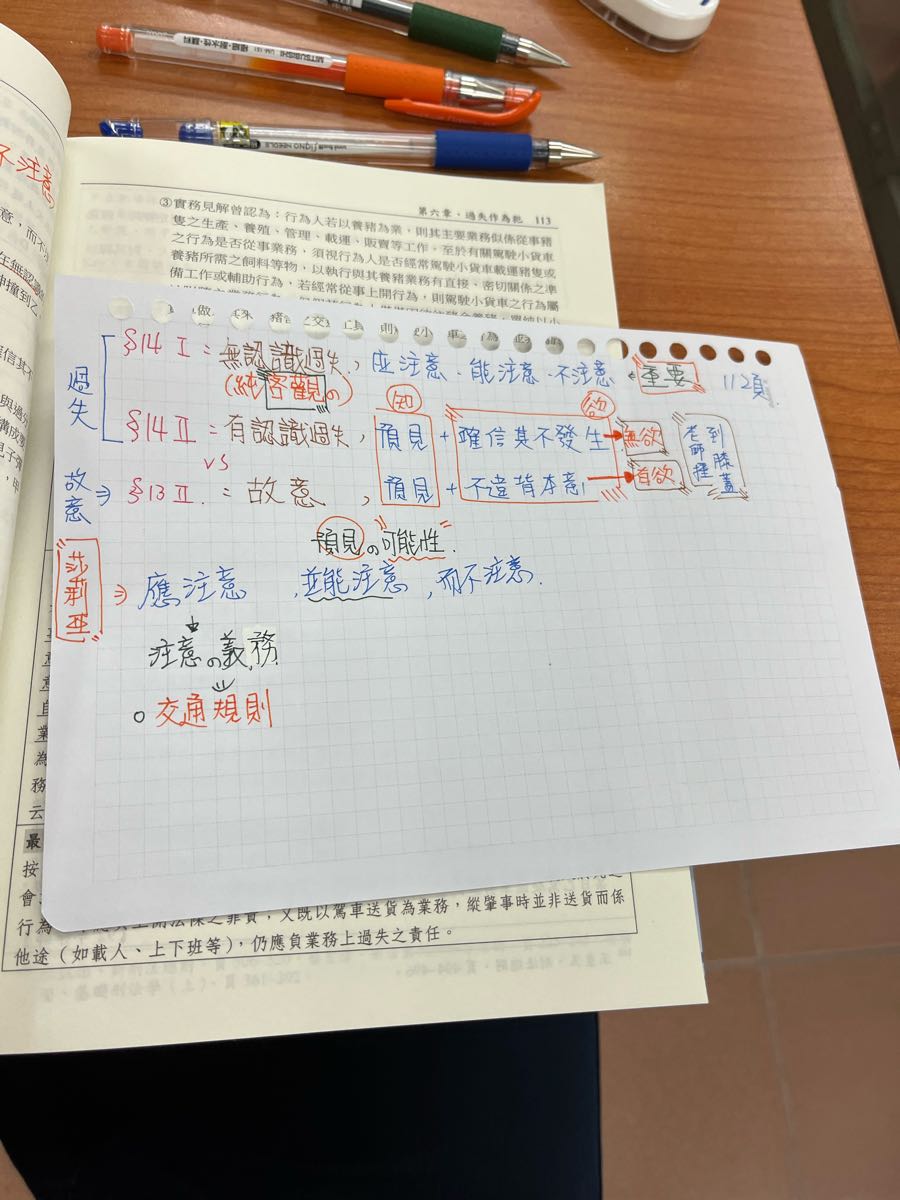 第六章・過失作為犯 113
③實務見解曾認為：行為人若以養豬為業，則其主要業務似係從事豬
隻之生產、養殖、管理、載運、販賣等工作，至於有關駕駛小貨車
之行為是否從事業務，須視行為人是否經常駕駛小貨車載運豬隻或
養豬所需之飼料等物，以執行與其養豬業務有直接、密切關係之準
備工作或輔助行為，若經常從事上開行為，則駕駛小貨車之行為屬
不注意
過失
§14 I = 無認識過失，應注意・能注意・不注意 重要 112頁.
(純客觀の)
知 欲
§14 II = 有認識過失，預見 + 確信其不發生 → 無欲
VS
故意 ⇒ §13 II. = 故意，預見 + 不違背本意 → 有欲
老師撞到膝蓋
預見の"可能性".
莎莉亞 ⇒ 應注意，並能注意，而不注意.
注意の義務.
交通規則
行為
他途（如載人、上下班等），仍應負業務上過失之責任。
又既以駕車送貨為業務，縱肇事時並非送貨而係